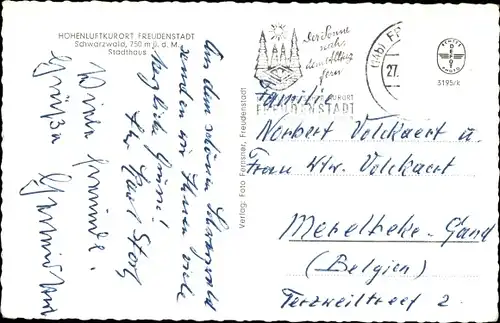 HÖHENLUFTKURORT FREUDENSTADT
Schwarzwald, 750 m ü. d. M.
Stadthaus
Aus dem schönen Schwarzwald
senden wir Ihnen viele
herzliche Grüsse!
Ihr Karl
Viele
Grüße
Verlag: Foto Fernsner, Freudenstadt
der Sonne
nah
dem Alltag
fern
KURORT
FREUDENSTADT
27.
ECHTE
FOTO
5195/k
Familie
Norbert Volckaert u.
Frau Wtw. Volckaert
Merelbeke-Gand
(Belgien)
Terzweiltreet 2.